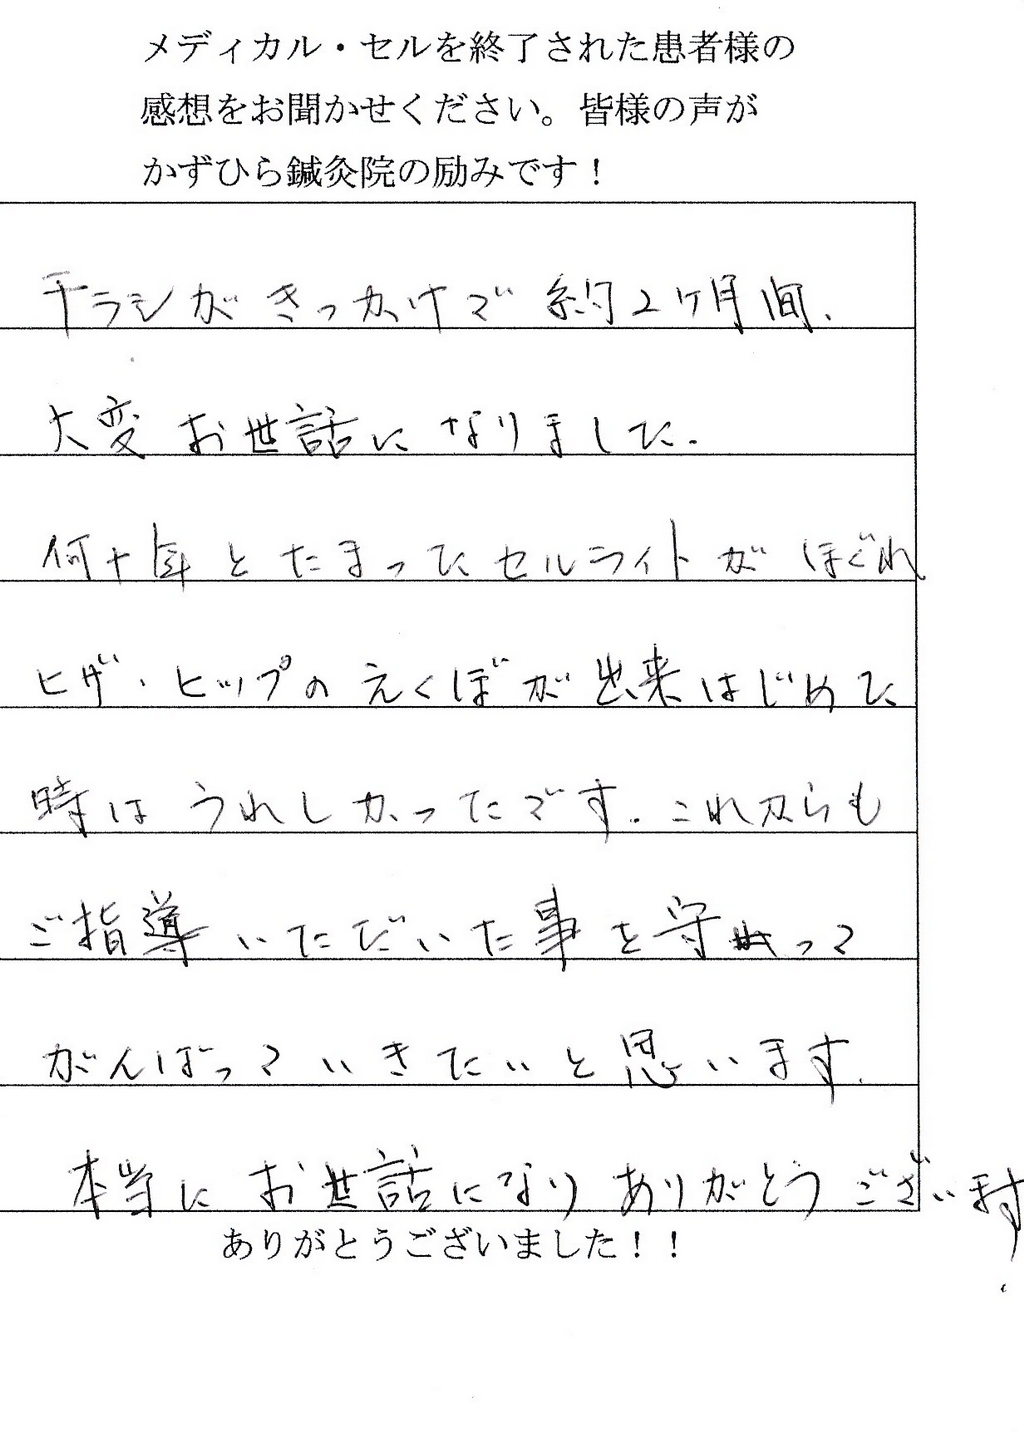 メディカル・セルを終了された患者様の
感想をお聞かせください。皆様の声が
かずひら鍼灸院の励みです！
チラシがきっかけで約2ケ月間、
大変お世話になりました。
何十年とたまったセルライトがほぐれ
ヒザ・ヒップのえくぼが出来はじめた
時はうれしかったです。これからも
ご指導いただいた事を守って
がんばっていきたいと思います。
本当にお世話になりありがとうございます。
ありがとうございました！！